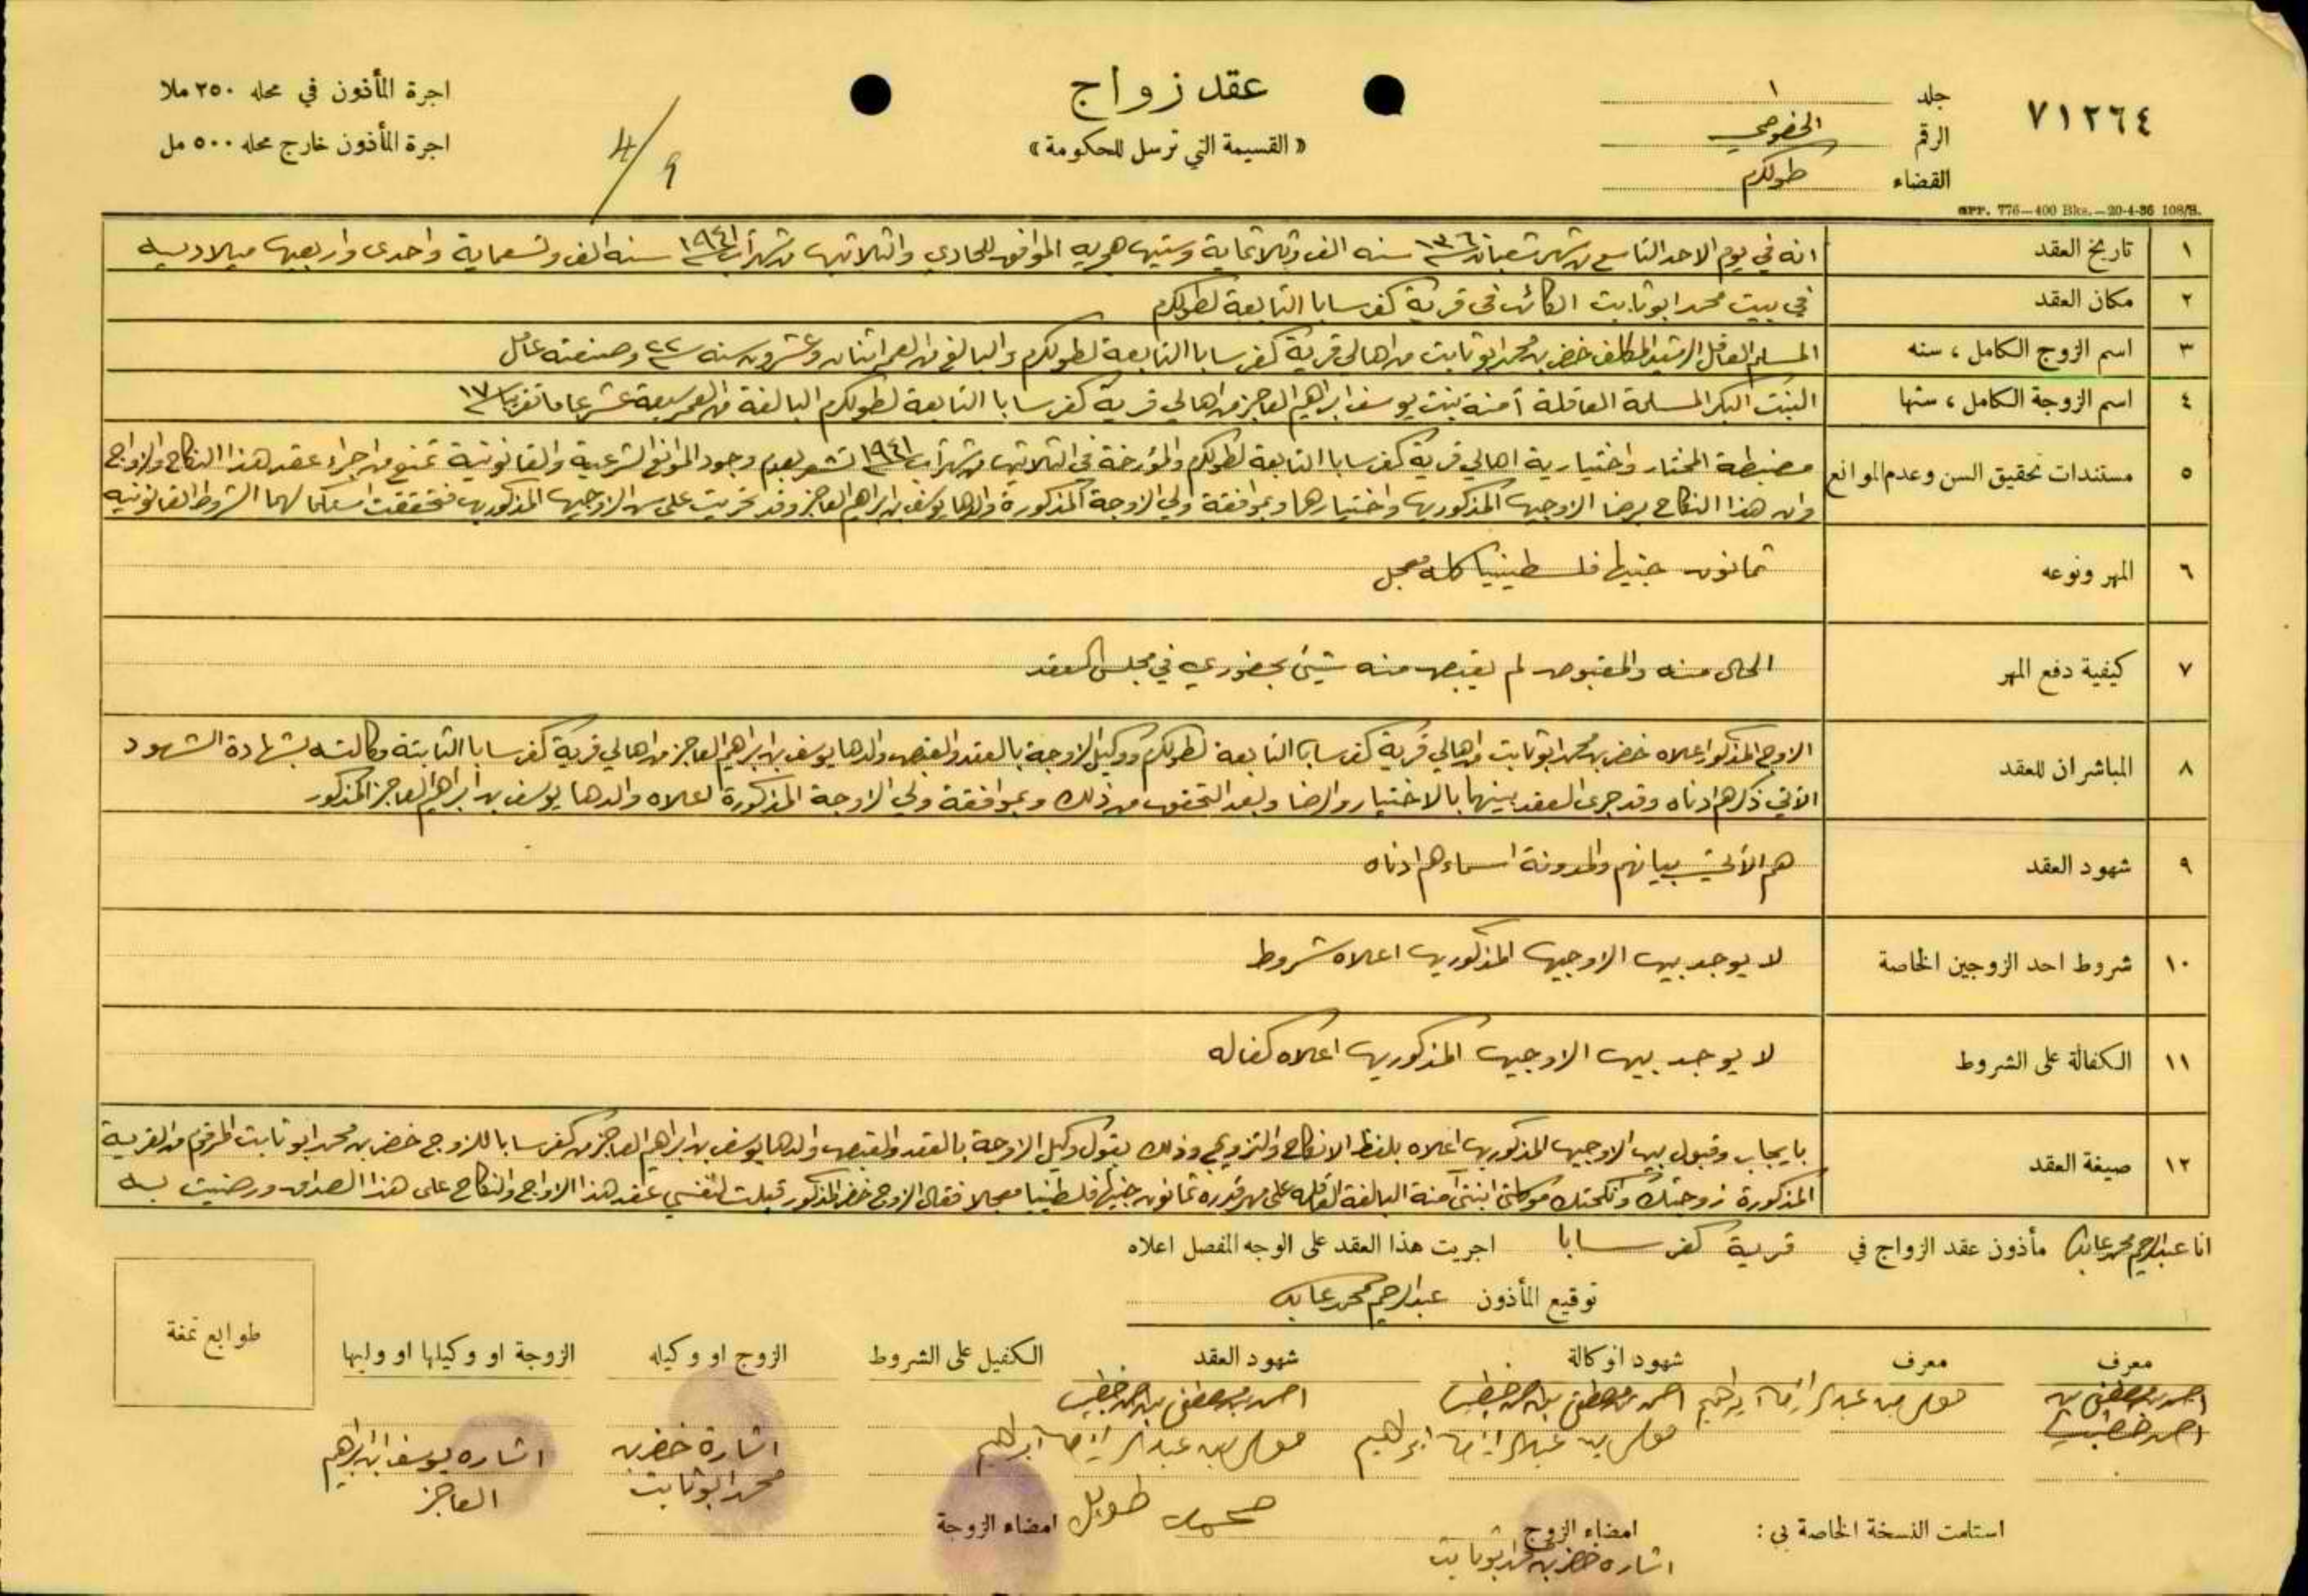 ٧١٢٦٤
جلد ١
الرقم الخصوصي
القضاء طولكرم
عقد زواج
« القسيمة التي ترسل للحكومة »
4/9
اجرة المأذون في محله ٢٥٠ ملا
اجرة المأذون خارج محله ٥٠٠ مل
GPP. 776—400 Bks.—20-4-36 108/B.
١ تاريخ العقد انه في يوم الاحد التاسع من شهر شعبان سنة ١٣٦٠ سنه الف وثلاثماية وستين هجريه الموافق للحادي والثلاثين من شهر آب سنة ١٩٤١ سنه الف وتسعماية واحدى واربعين ميلاديه
٢ مكان العقد في بيت محمد ابو ثابت الكائن في قرية كفر سابا التابعة لطولكرم
٣ اسم الزوج الكامل ، سنه المسلم العاقل الرشيد المكلف خضر بن محمد ابو ثابت من اهالي قرية كفر سابا التابعة لطولكرم والبالغ من العمر اثنان وعشرون سنه ٢٢ سنة وصنعته عامل
٤ اسم الزوجة الكامل ، سنها البنت البكر المسلمة العاقلة آمنة بنت يوسف ابراهيم العاجز من اهالي قرية كفر سابا التابعة لطولكرم البالغة من العمر سبعة عشر عاما تقريبا ١٧ سنة
٥ مستندات تحقيق السن وعدم الموانع مضبطة المختار واختيارية اهالي قرية كفر سابا التابعة لطولكرم والمؤرخة في الثلاثين من شهر آب سنة ١٩٤١ تشعر بعدم وجود الموانع الشرعية والقانونية تمنع من اجراء عقد هذا النكاح والزواج
وان هذا النكاح برضا الزوجين المذكورين واختيارهما وبموافقة ولي الزوجة المذكورة والدها يوسف بن ابراهيم العاجز وقد تحريت على سن الزوجين المذكورين فتحققت استكمالهما الشروط القانونيه
٦ المهر ونوعه ثمانون جنيها فلسطينيا كله معجل
٧ كيفية دفع المهر الحال منه والمقبوض لم يقبض منه شيئ بحضوري في مجلس العقد
٨ المباشران للعقد الزوج المذكور اعلاه خضر بن محمد ابو ثابت من اهالي قرية كفر سابا التابعة لطولكرم ووكيل الزوجة بالعقد والقبض والدها يوسف بن ابراهيم العاجز من اهالي قرية كفر سابا الثابتة وكالته بشهادة الشهود
الآتي ذكرهم ادناه وقد جرى العقد بينهما بالاختيار والرضا وبعد التحقق من ذلك وبموافقة ولي الزوجة المذكورة اعلاه والدها يوسف بن ابراهيم العاجز المذكور
٩ شهود العقد هم الآتي بيانهم والمدونة اسماءهم ادناه
١٠ شروط احد الزوجين الخاصة لا يوجد بين الزوجين المذكورين اعلاه شروط
١١ الكفالة على الشروط لا يوجد بين الزوجين المذكورين اعلاه كفاله
١٢ صيغة العقد بايجاب وقبول بين الزوجين المذكورين اعلاه بلفظ الانكاح والتزويج وذلك بقول وكيل الزوجة بالعقد والقبض والدها يوسف بن ابراهيم العاجز من كفر سابا للزوج خضر بن محمد ابو ثابت المرقوم من القرية
المذكورة زوجتك وانكحتك موكلتي ابنتي آمنة البالغة العاقله على مهر قدره ثمانون جنيها فلسطينيا معجلا فقال الزوج خضر المذكور قبلت لنفسي عقد هذا الزواج والنكاح على هذا الصداق ورضيت به
انا عبدالرحيم محمد عابد مأذون عقد الزواج في قرية كفر سابا اجريت هذا العقد على الوجه المفصل اعلاه
توقيع المأذون عبدالرحيم محمد عابد
معرف معرف شهود الوكالة شهود العقد الكفيل على الشروط الزوج او وكيله الزوجة او وكيلها او وليها
طوابع تمغة
احمد بن مصطفى بن
احمد خطيب
ابراهيم
احمد بن مصطفى بن احمد خطيب
ابراهيم
احمد بن مصطفى بن احمد خطيب
ابراهيم
محمد طويل
اشارة خضر بن
محمد ابو ثابت
اشاره يوسف ابن ابراهيم
العاجز
استلمت النسخة الخاصة بي :
امضاء الزوج
اشاره خضر بن محمد ابو ثابت
امضاء الزوجة